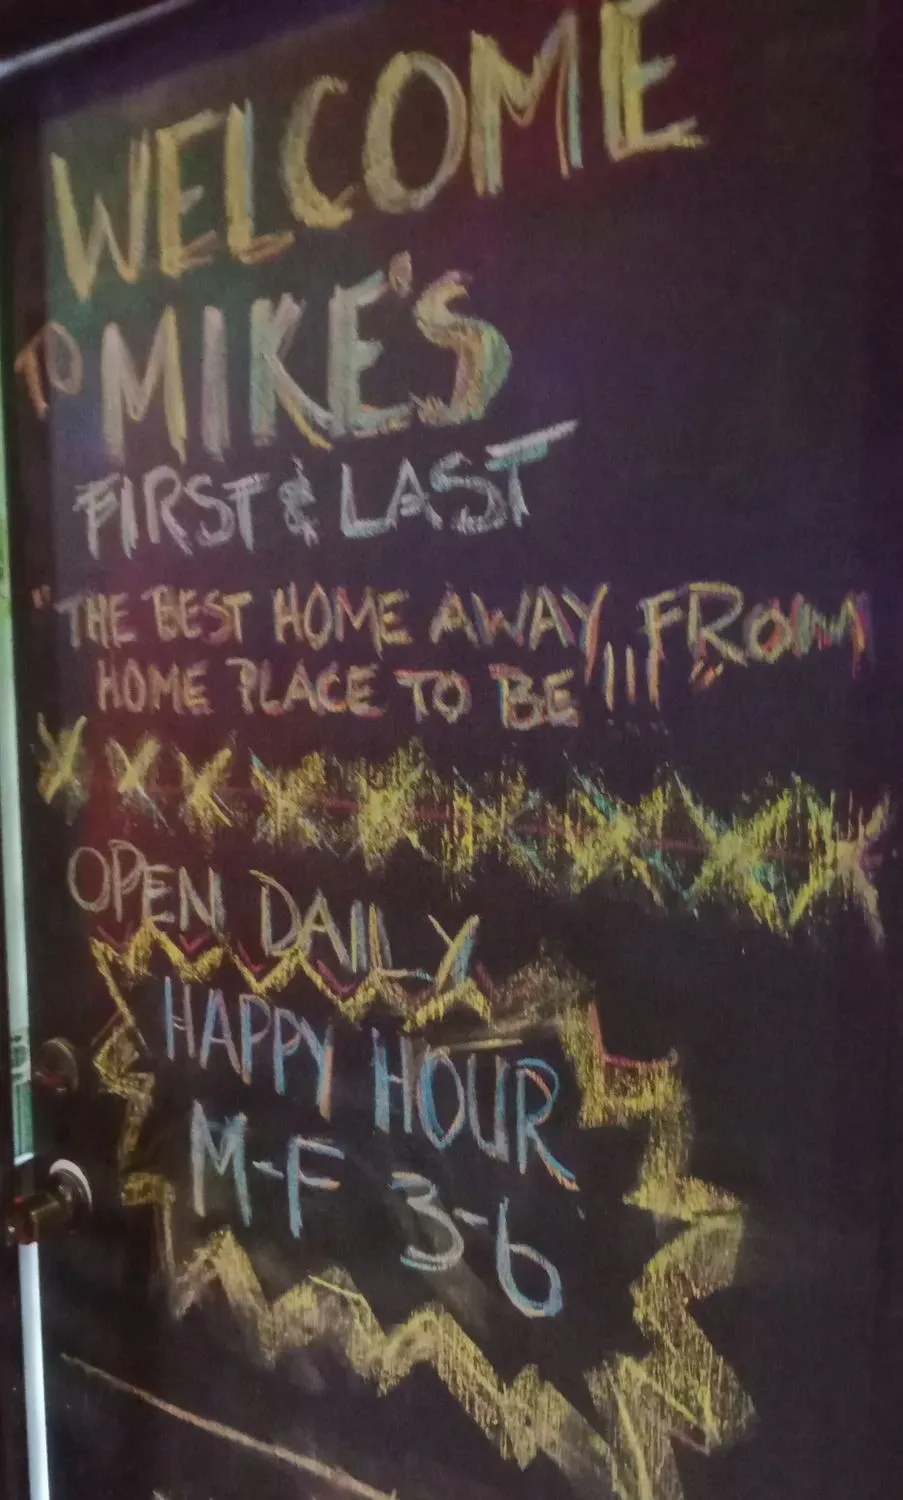 WELCOME
TO MIKE'S
FIRST & LAST
"THE BEST HOME AWAY FROM
HOME PLACE TO BE !!!"
OPEN DAILY
HAPPY HOUR
M-F 3-6